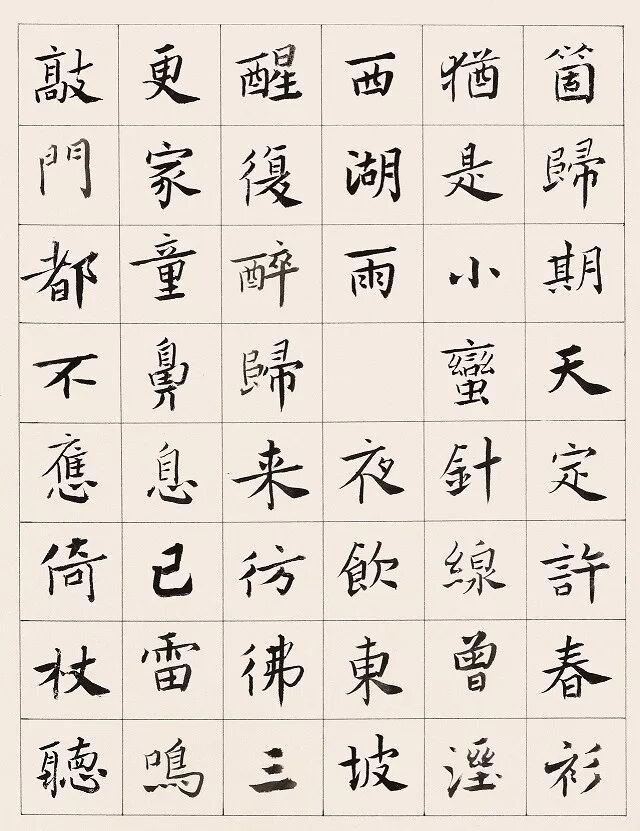 箇歸期天定許春衫
猶是小蠻針線曾溼
西湖雨 夜飲東坡
醒復醉歸来彷彿三
更家童鼻息已雷鳴
敲門都不應倚杖聽